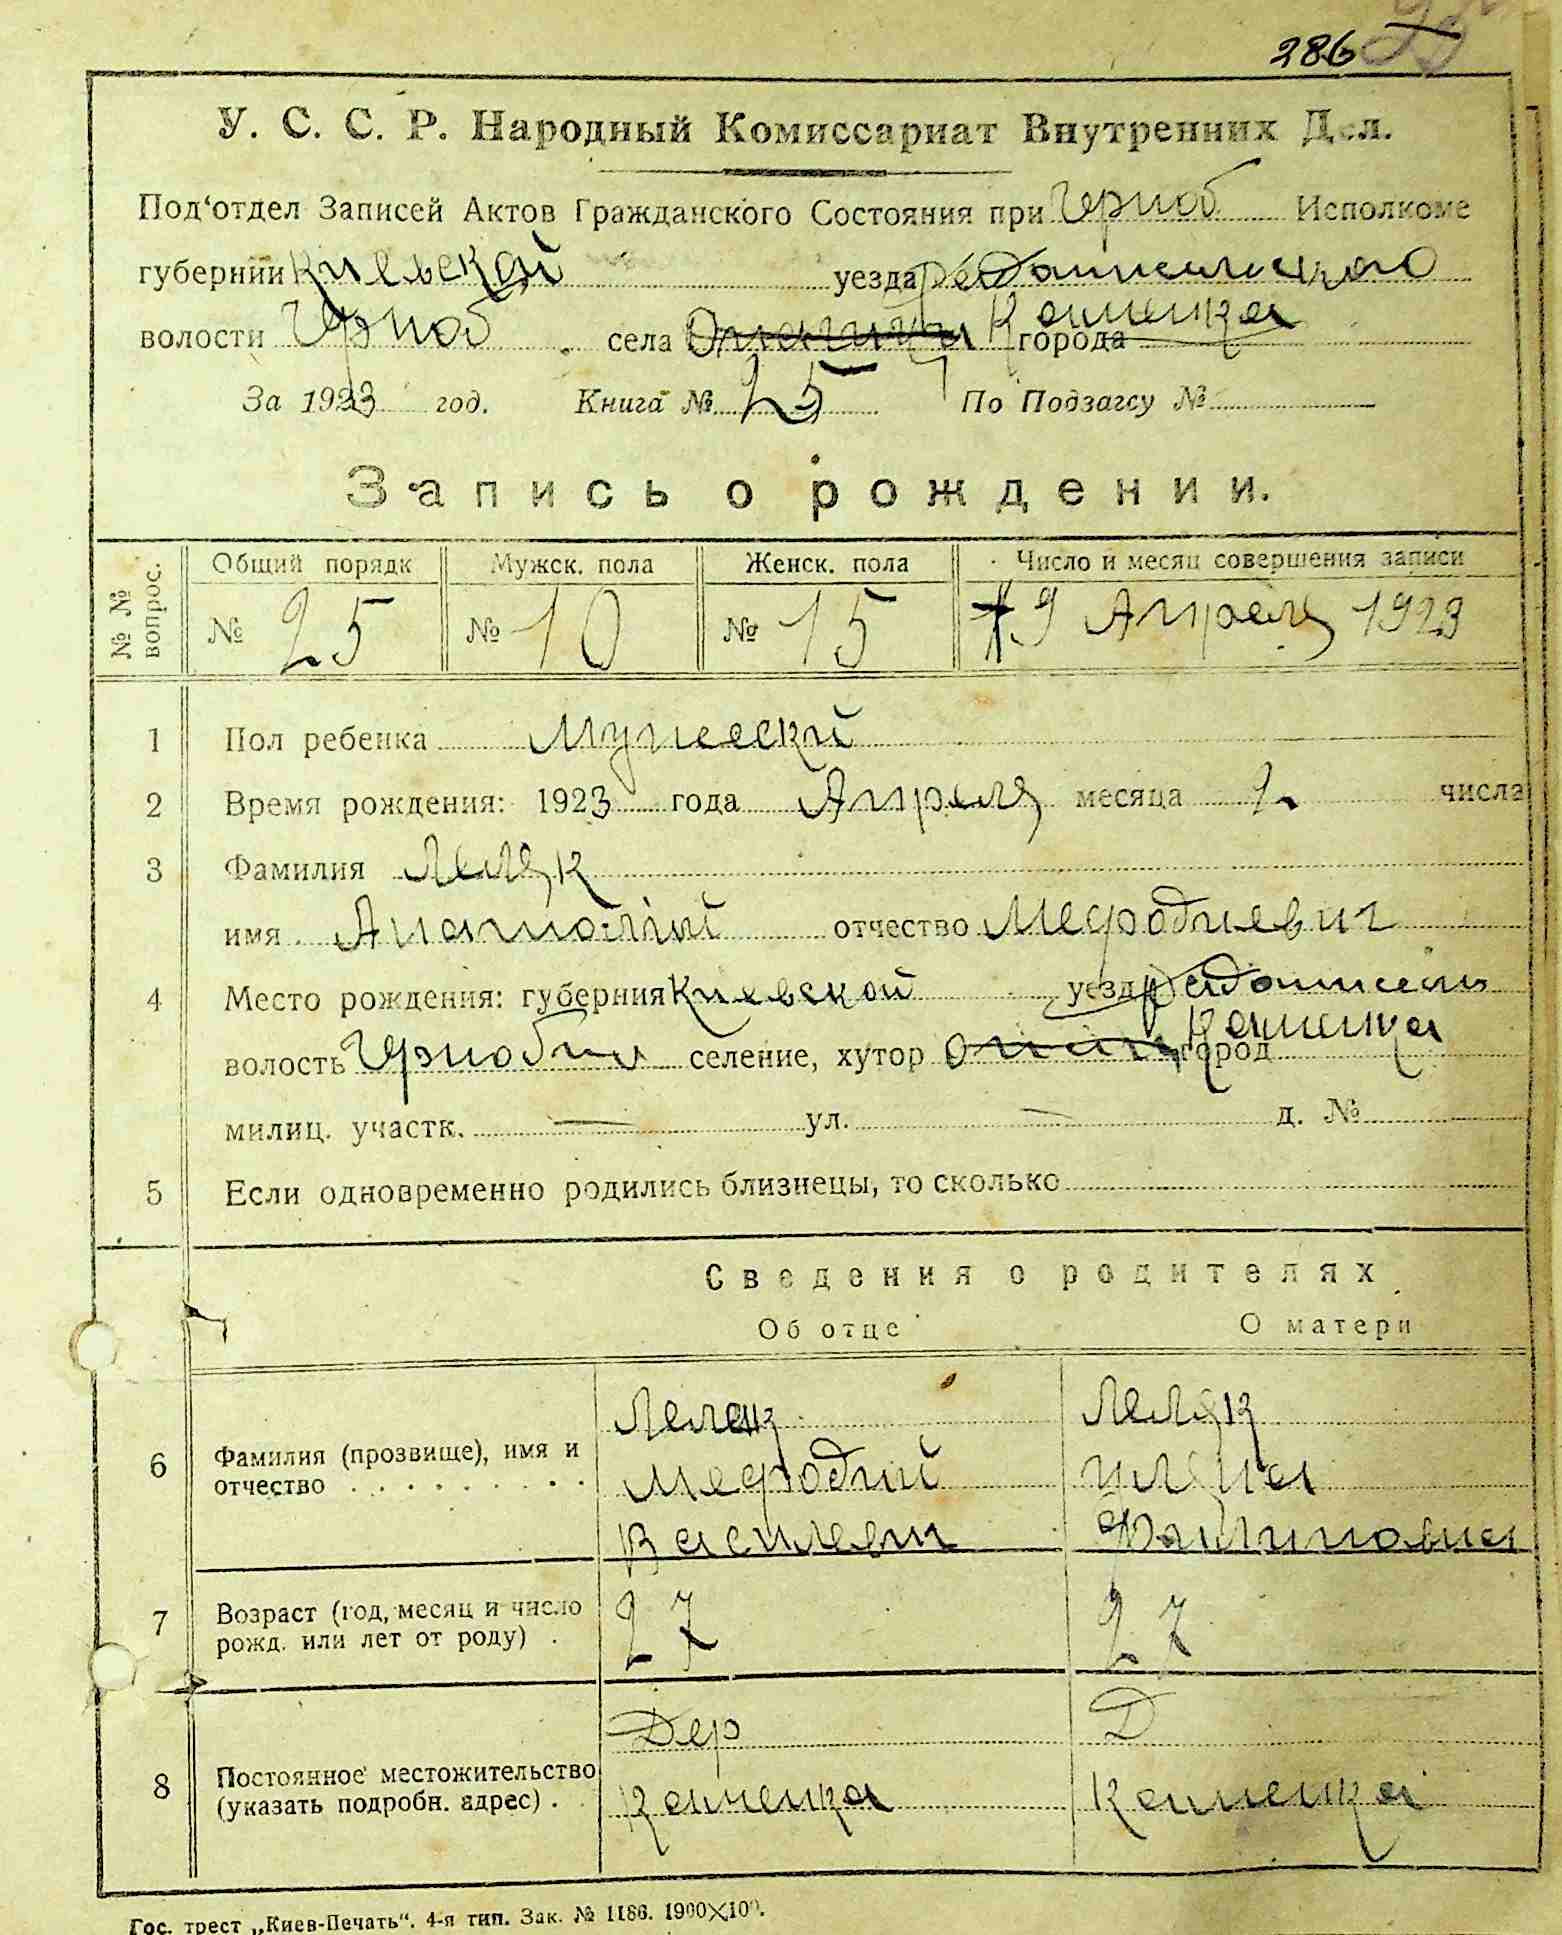 286
У. С. С. Р. Народный Комиссариат Внутренних Дел.
Под'отдел Записей Актов Гражданского Состояния при Черноб Исполкоме
губернии Киевской уезда
волости Черноб села Каменка города
За 1923 год. Книга № 25 По Подзагсу №
Запись о рождении.
№ № вопрос. Общий порядк Мужск. пола Женск. пола Число и месяц совершения записи
№ 25 № 10 № 15 19 Апреля 1923
1 Пол ребенка Мужеский
2 Время рождения: 1923 года Апреля месяца 1. числа
3 Фамилия Леляк
имя Анатолий отчество Мефодиевич
4 Место рождения: губерния Киевской уезд
волость селение, хутор Каменка город
милиц. участк. — ул. — д. №
5 Если одновременно родились близнецы, то сколько
Сведения о родителях
Об отце О матери
6 Фамилия (прозвище), имя и отчество Леляк Леляк
Мефодий Уляна
Василевич Филиповна
7 Возраст (год, месяц и число рожд. или лет от роду) . 27 27
8 Постоянное местожительство (указать подробн. адрес) . Дер Д
Каменка Каменка
Гос. трест „Киев-Печать“. 4-я тип. Зак. № 1186. 1900×100.